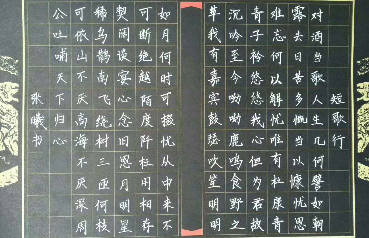 短歌行
对酒当歌人生几何譬如朝
露去日苦多慨当以慷忧思
难忘何以解忧唯有杜康青
青子衿悠悠我心但为君故
沉吟至今呦呦鹿鸣食野之
苹我有嘉宾鼓瑟吹笙明明
如月何时可掇忧从中来不
可断绝越陌度阡枉用相存
契阔谈宴心念旧恩月明星
稀乌鹊南飞绕树三匝何枝
可依山不厌高海不厌深周
公吐哺天下归心
张曦书